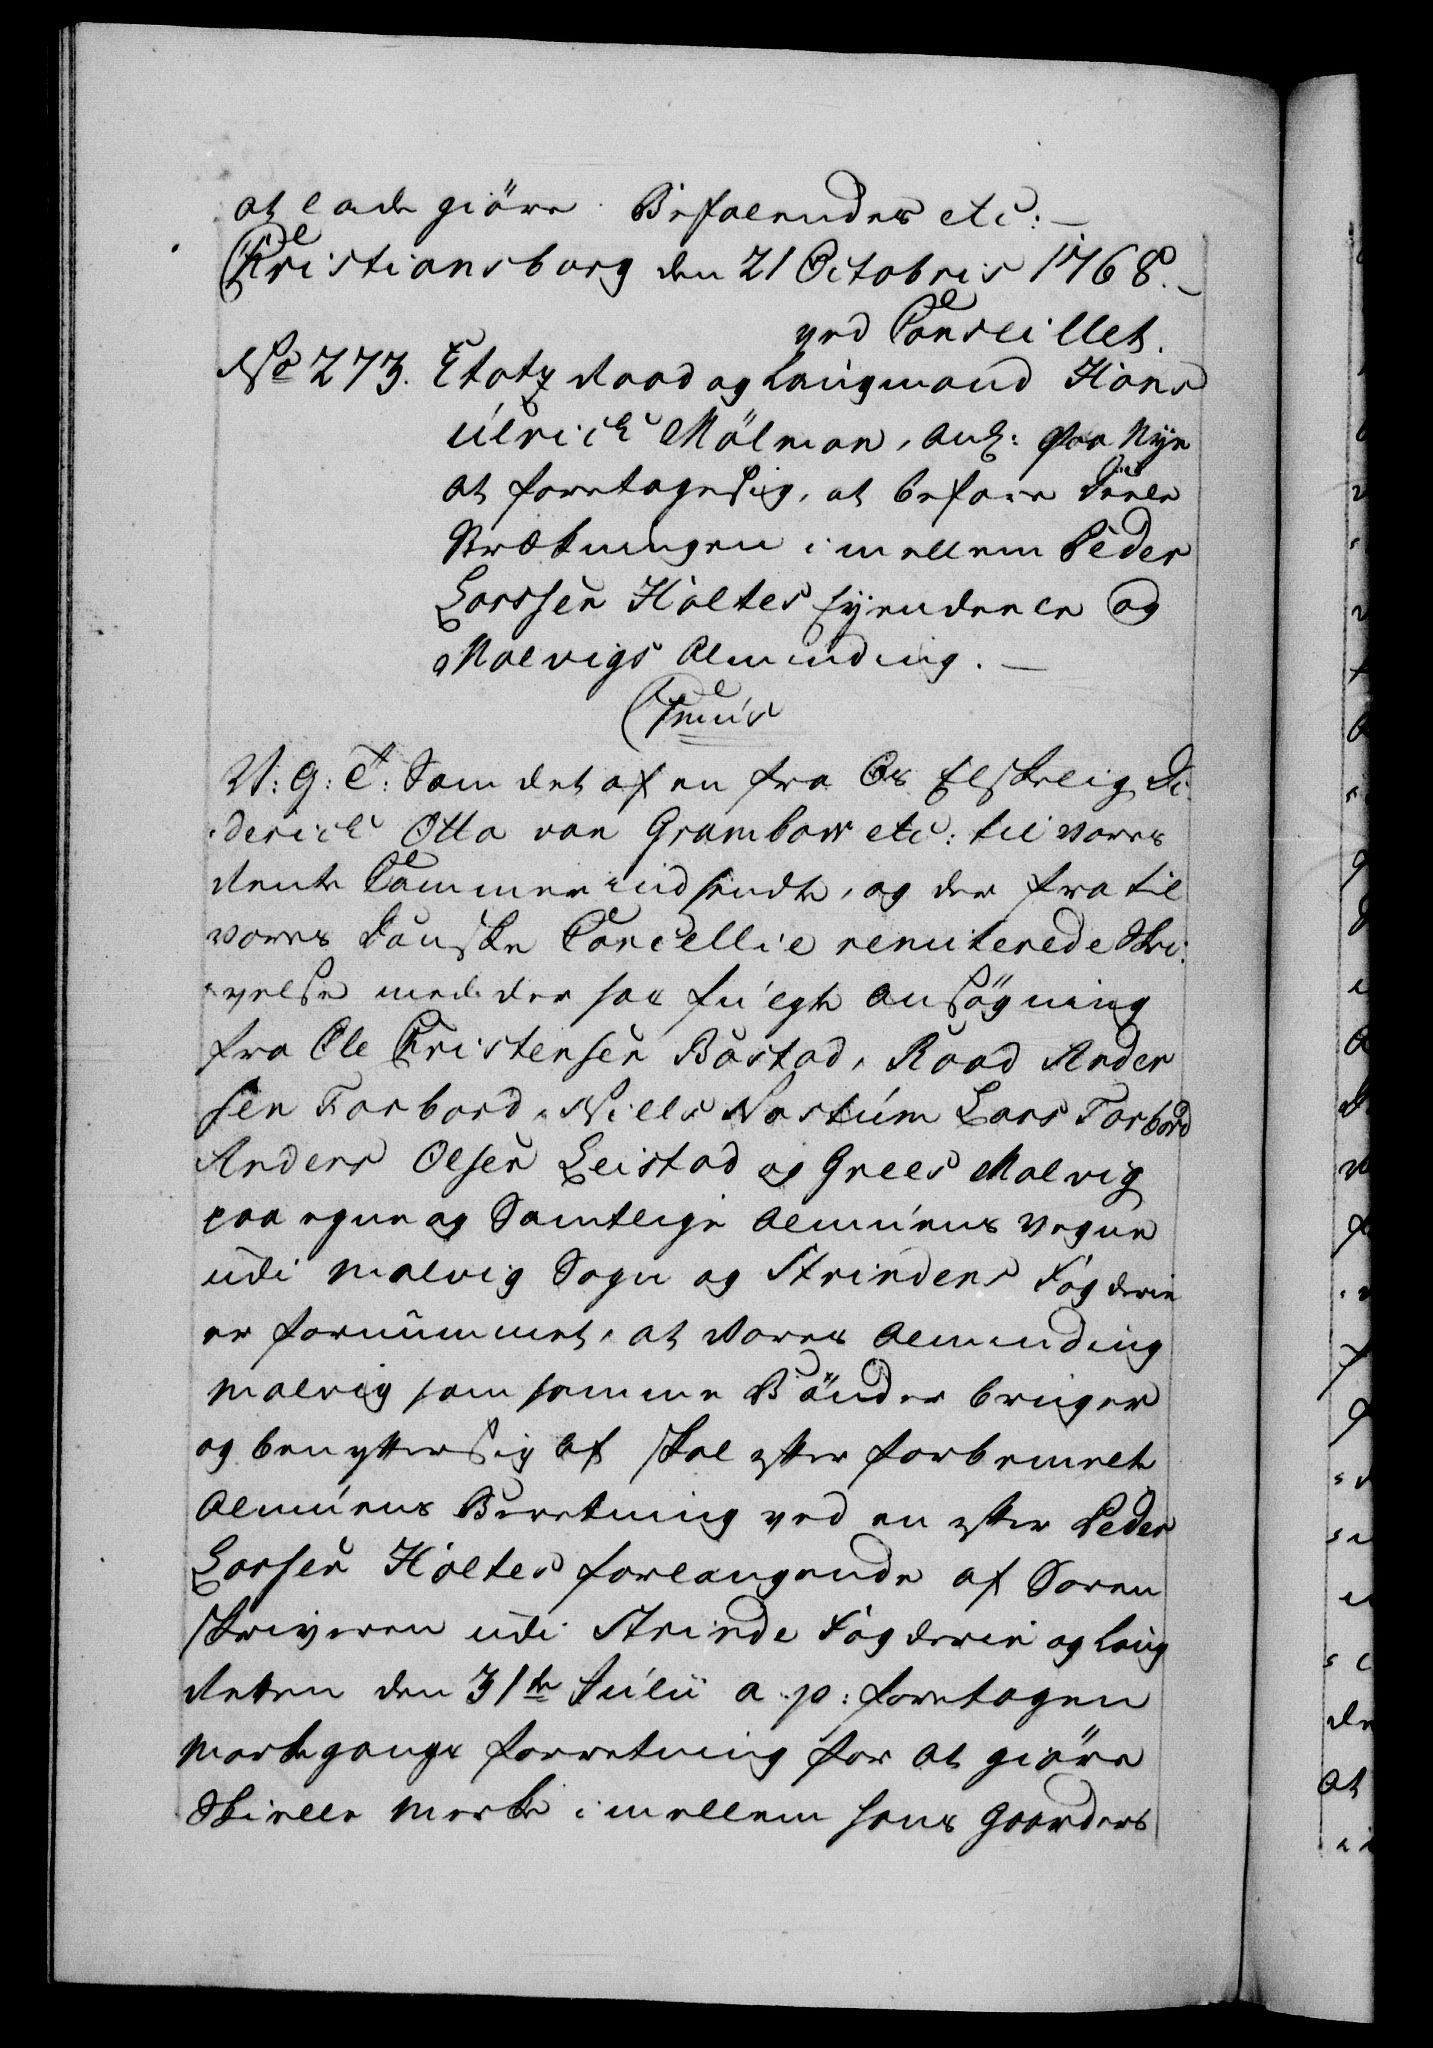 at lade giöre. Befalendes etc: —
Christiansborg den 21 Octobris 1768. —
ved Conseillet.
No 273. Etatz Raad og Laugmand Hans
Ulrich Mölman, ang: paa Nye
at foretage sig, at befare deele
Strækningen imellem Peder
Larssen Holtes Eyendeele og
Malvigs Alminding. —
Cmus
V: G: T: Som det af en fra Os Elskelig Di
derich Otto von Grambow etc: til vores
Rente Cammer indsendte, og der fra til
vores Danske Cancellie remiterede Skri
velse med der hos fulgte Ansögning
fra Ole Christensen Bostad, Road Ander
sen Forbord, Niells Nostum Lars Forbord
Anders Olsen Leistad og Grees Malvig
paa egne og Samtlige Almuens Vegne
udi Malvig Sogn og Strindens Fogderie
er fornummet, at Vores Alminding
Malvig som samme Bönder bruger
og benytter sig af skal efter forbemelte
Almuens Beretning ved en efter Peder
Larsen Holtes forlangende af Soren
skriveren udi Strinde Fogderie og Laug
Retten den 31te Julii a. p: foretagen
Markegangs forretning for at giöre
Skielle Merke imellem hans Gaarders